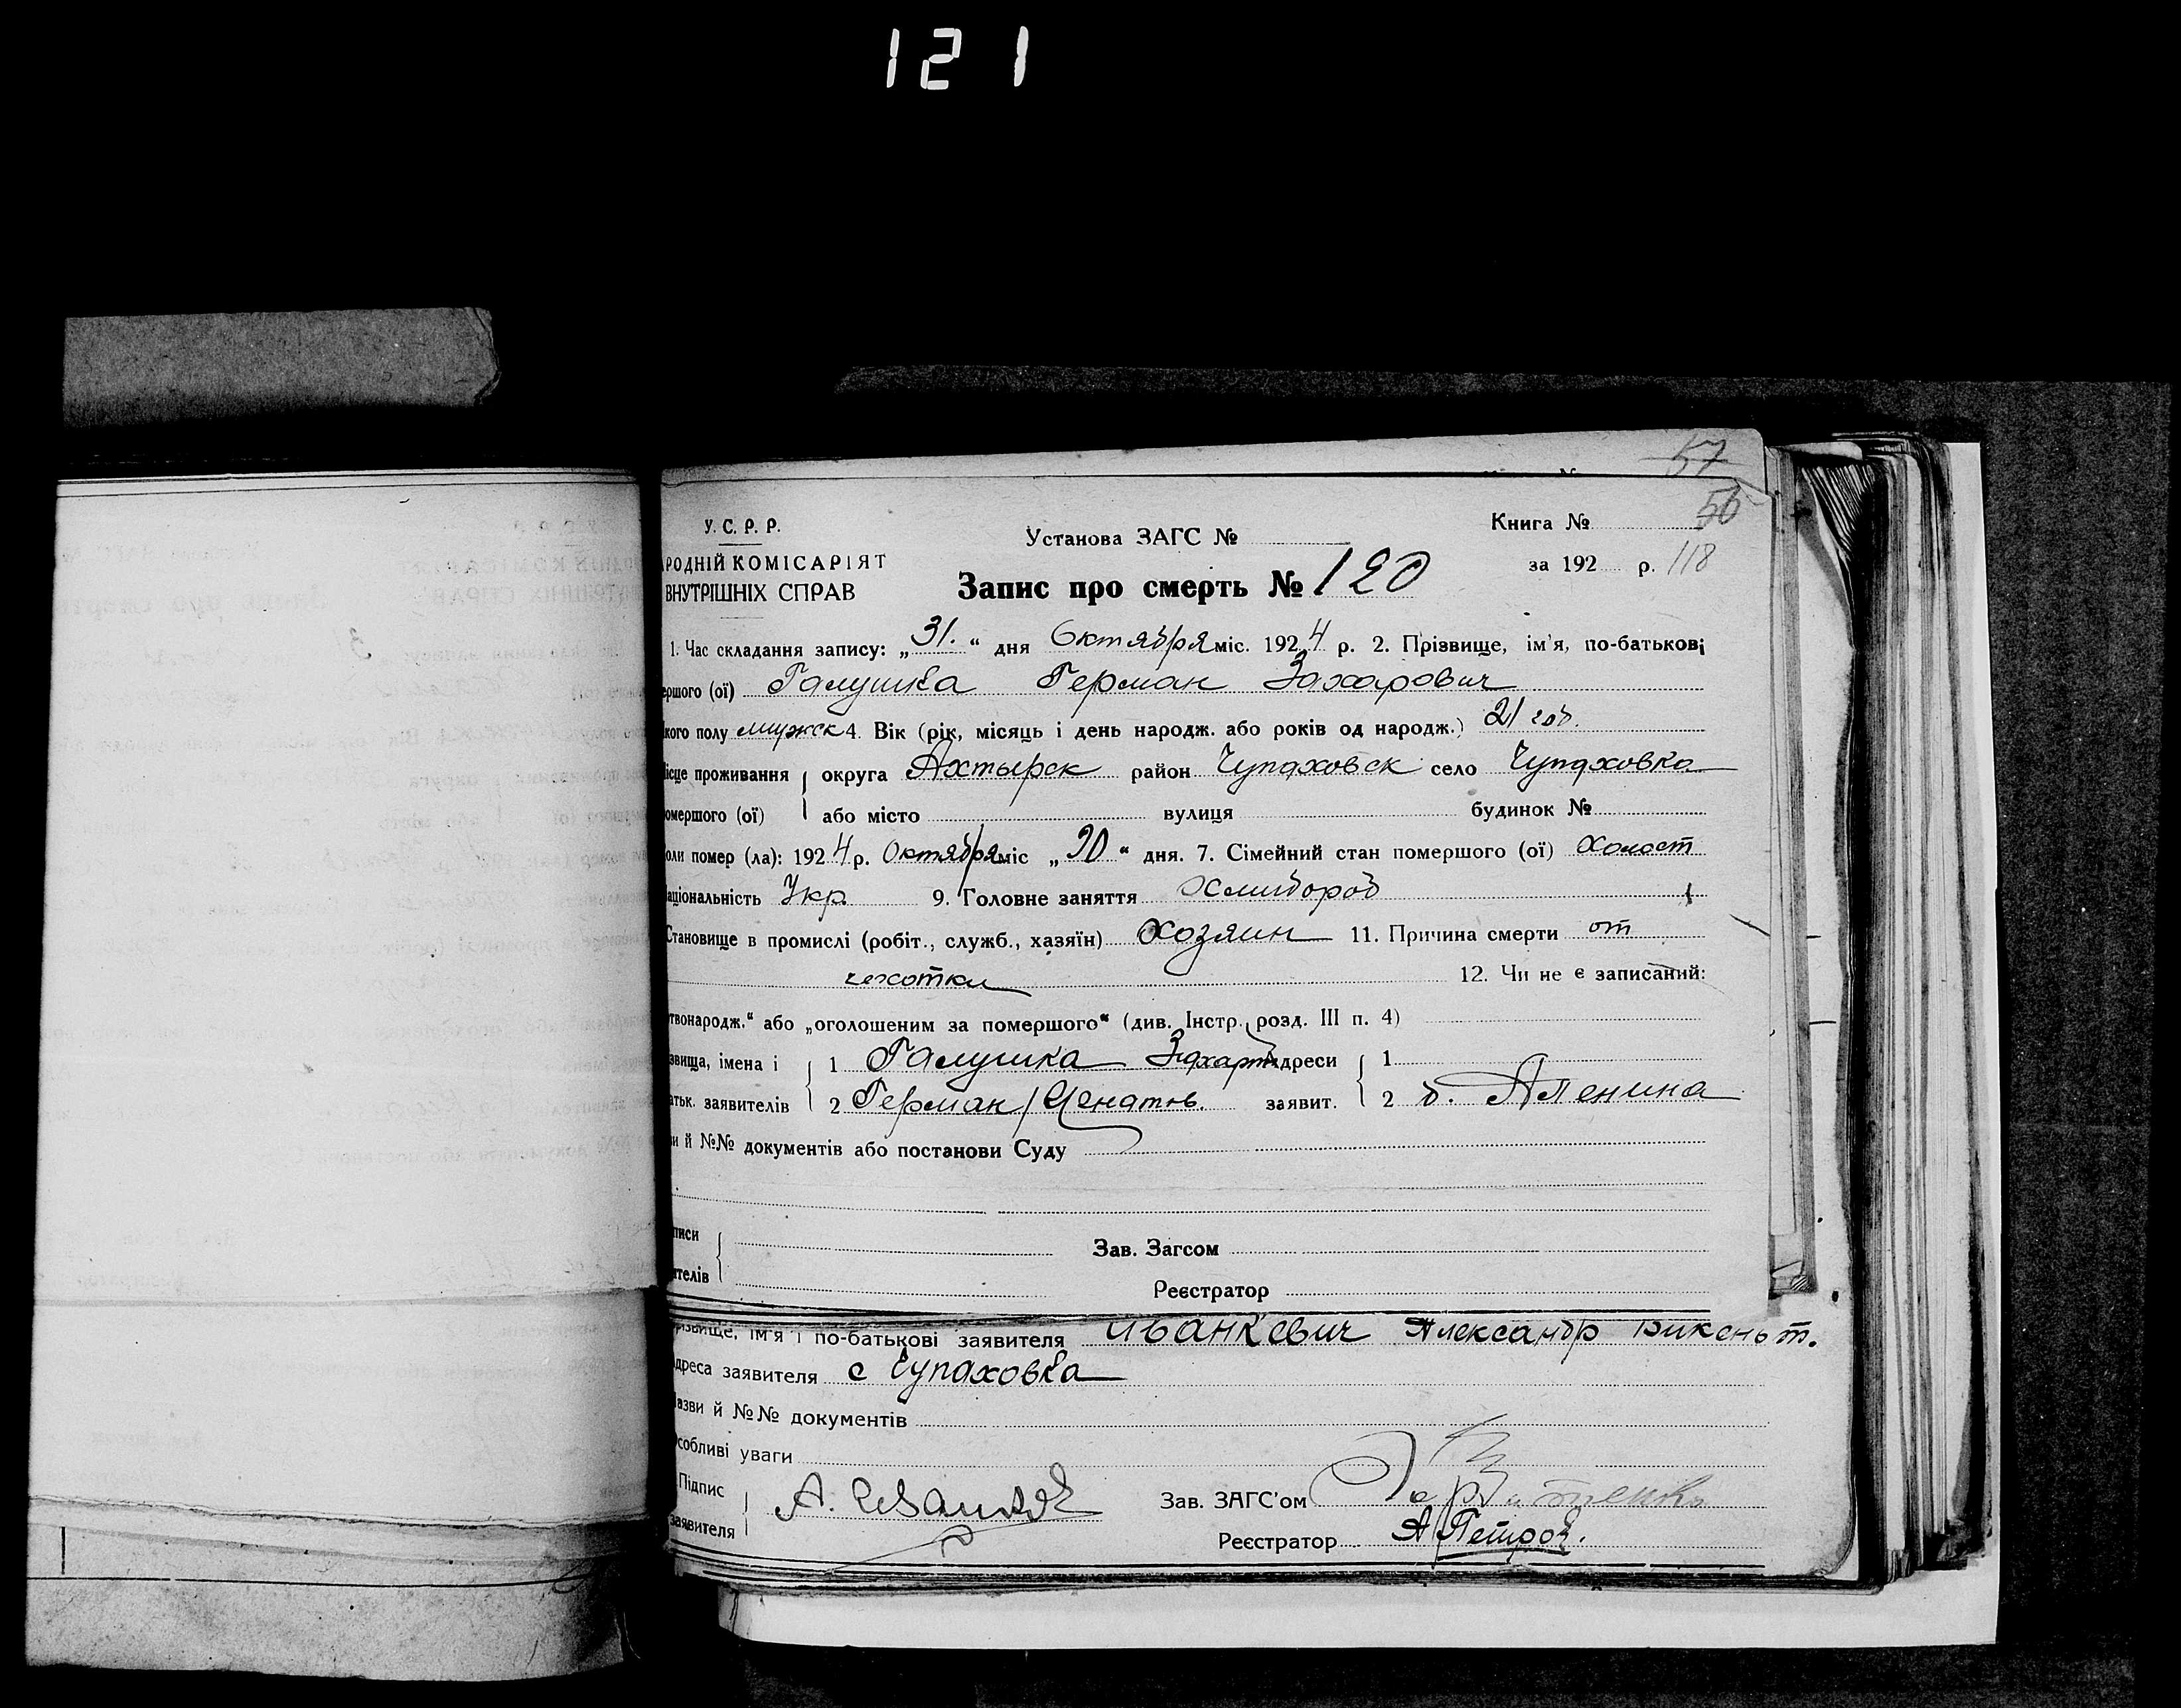 121
57
56
У. С. Р. Р.
Установа ЗАГС №
Книга №
РОДНІЙ КОМІСАРІЯТ
ВНУТРІШНІХ СПРАВ
Запис про смерть № 120
за 192 р. 118
1. Час складання запису: „31.“ дня Октября міс. 1924 р. 2. Прізвище, ім'я, по-батькові
ершого (ої) Галушка Герман Захарович
кого полу мужск 4. Вік (рік, місяць і день народж. або років од народж.) 21 год.
ісце проживання округа Ахтырск район Чупаховск село Чупаховка
омершого (ої) або місто вулиця будинок №
оли помер (ла): 1924 р. Октября міс „30“ дня. 7. Сімейний стан помершого (ої) Холост
аціональність Укр. 9. Головне заняття Хлибороб
Становище в промислі (робіт., служб., хазяїн) Хозяин 11. Причина смерти от
чехотки 12. Чи не є записаний:
твонародж.“ або „оголошеним за помершого“ (див. Інстр. розд. III п. 4)
звища, імена і 1 Галушка Захарт Адреси 1
атьк. заявителів 2 Герман Игнатов. заявит. 2 Аленина
и й №№ документів або постанови Суду
писи
Зав. Загсом
ителів
Реєстратор
різвище, ім'я і по-батькові заявителя Иванкевич Александр Викеньт.
дреса заявителя с Чупаховка
азви й №№ документів
собливі уваги
Підпис
заявителя
Зав. ЗАГС'ом
Реєстратор А Петров.